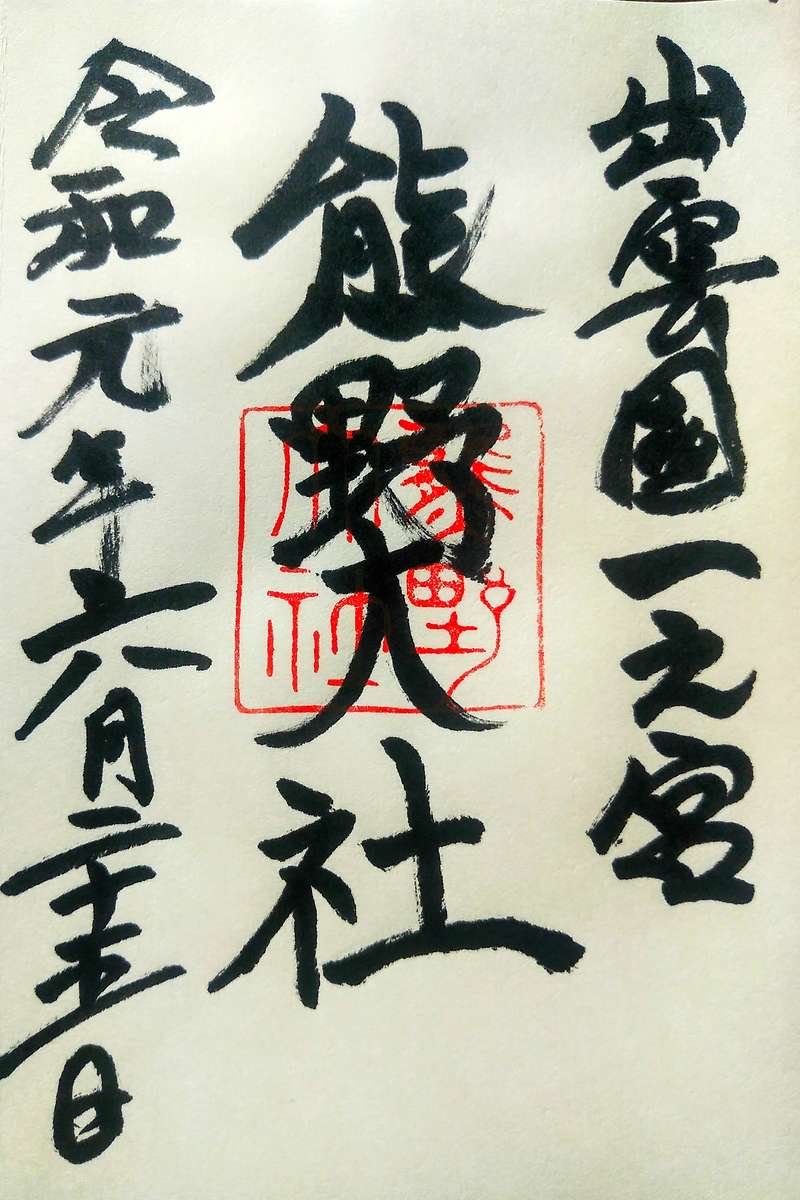 出雲國一之宮
熊野大社
熊野
大社
令和元年六月二十五日